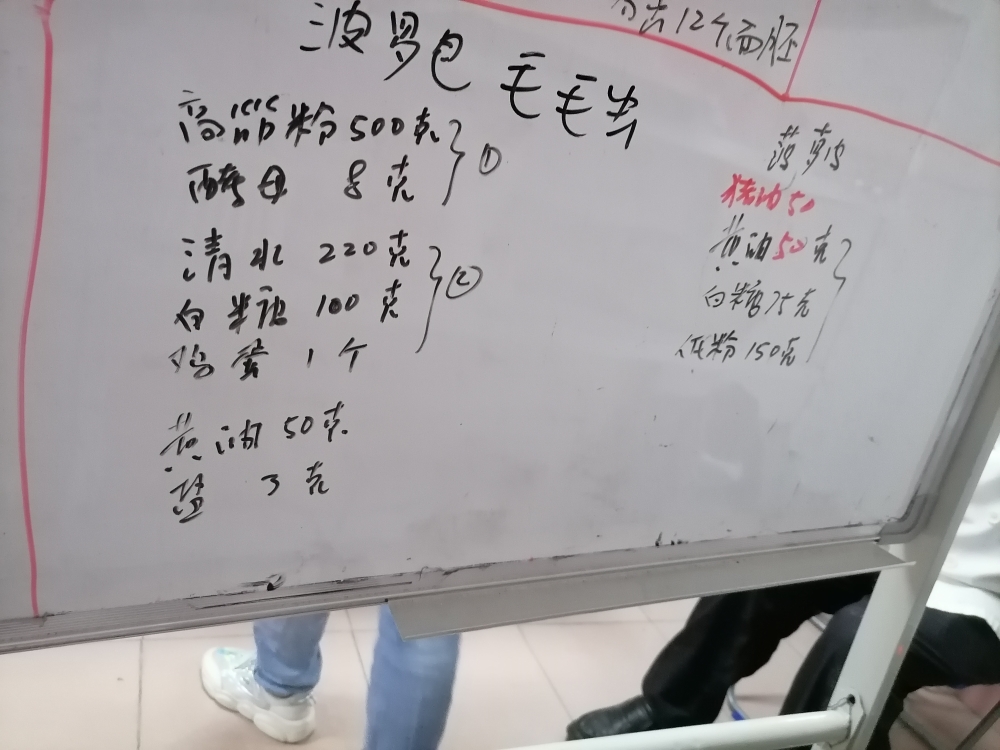 分出12个面胚
波罗包 毛毛虫
高筋粉 500克 ①
酵母 8克
清水 220克 ②
白糖 100克
鸡蛋 1个
黄油 50克
盐 3克
菠萝皮
猪油50
黄油50克
白糖75克
低粉150克